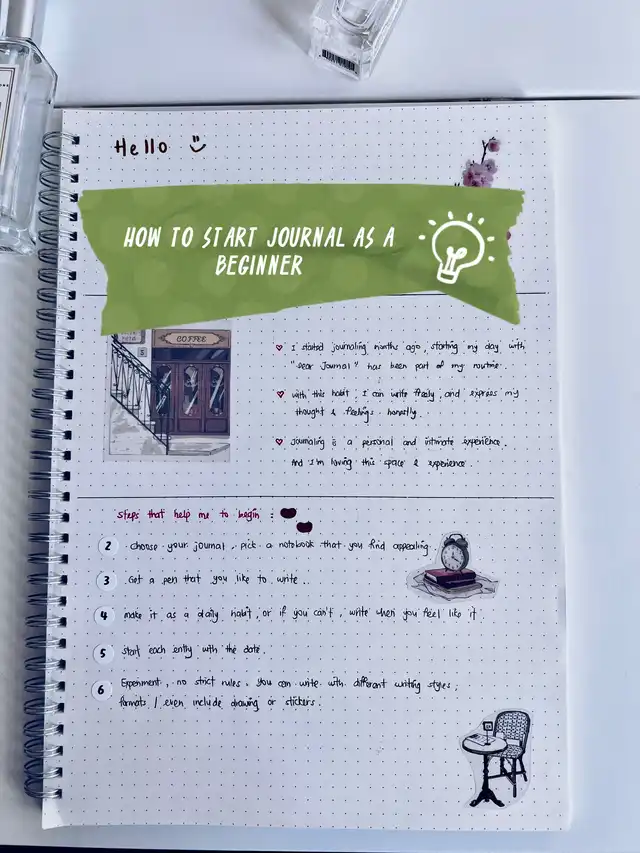 Hello
HOW TO START JOURNAL AS A
BEGINNER
COFFEE
I started journaling months ago, starting my day with
"Dear Journal" has been part of my routine.
with this habit, I can write freely, and express my
thought & feelings honestly.
Journaling is a personal and intimate experience.
And I'm loving this space & experience.
Steps that help me to begin :
2 . choose your journal, pick a notebook that you find appealing.
3 . Get a pen that you like to write..
4 make it as a daily habit, or if you can't, write when you feel like it.
5 start each entry with the date.
6 Experiment, no strict rules. You can write with different writing styles,
formats / even include drawing or stickers.